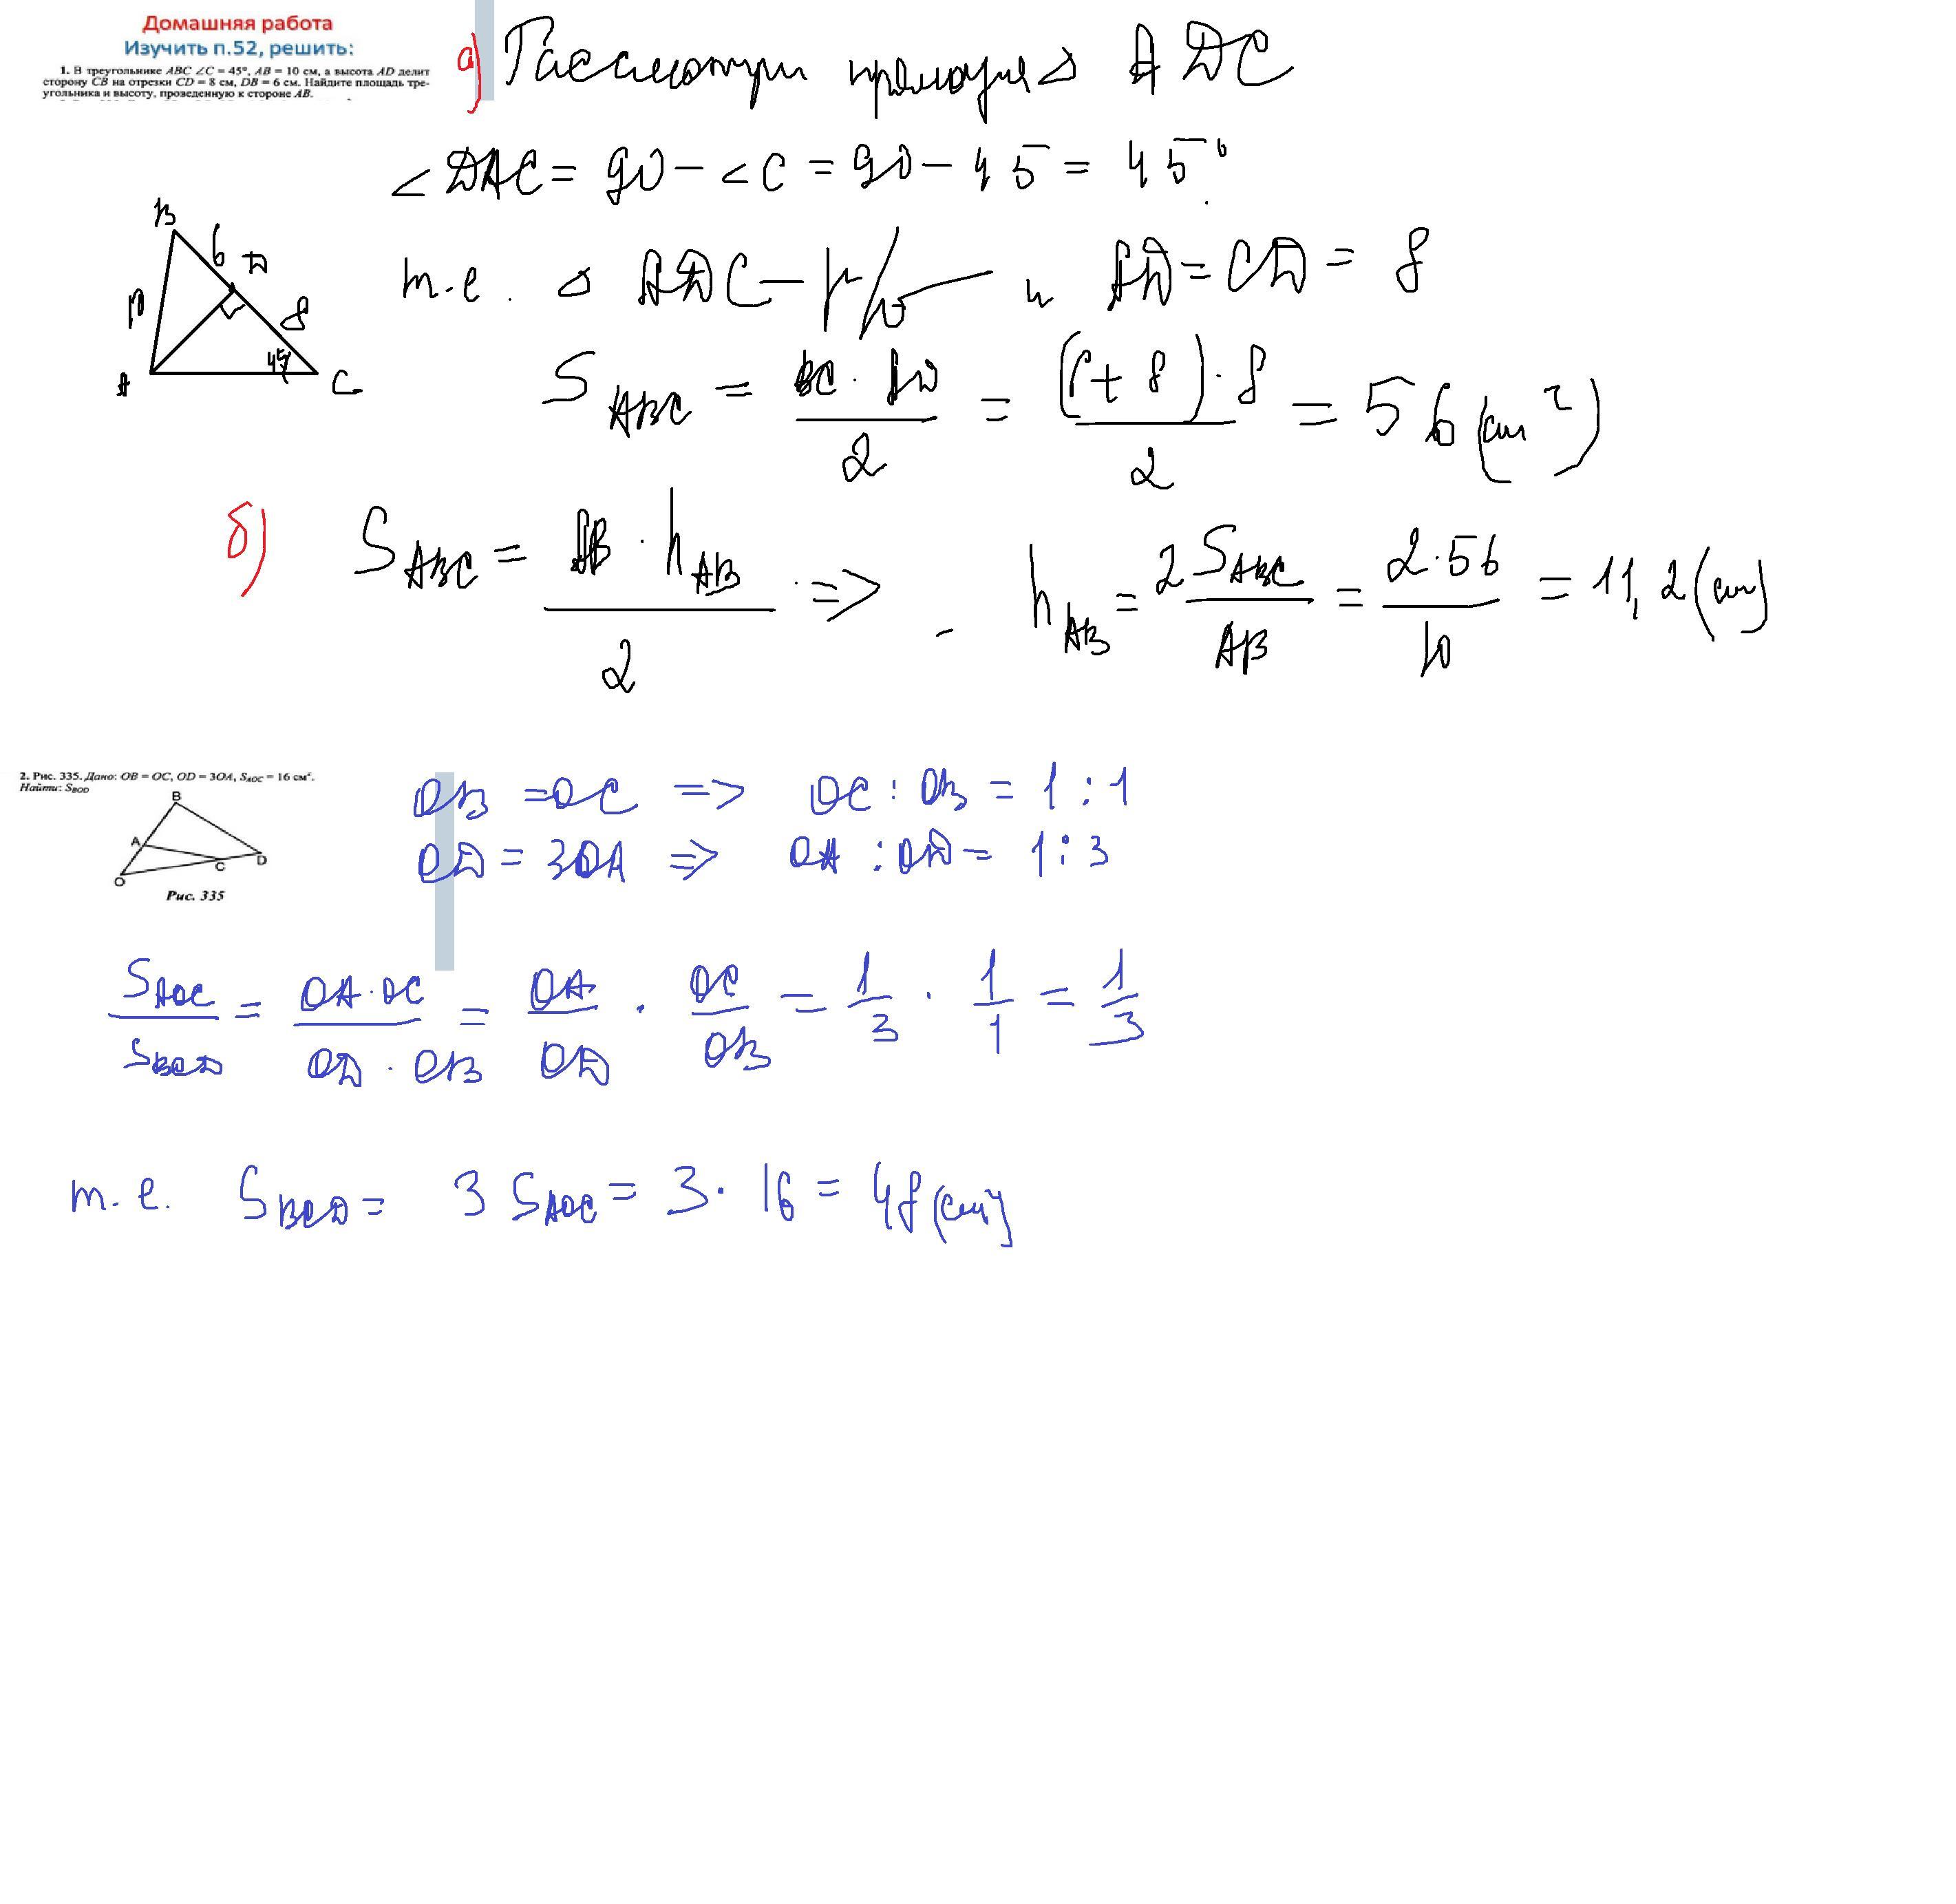 Домашняя работа
Изучить п.52, решить:
1. В треугольнике ABC ∠C = 45°, AB = 10 см, а высота AD делит
сторону CB на отрезки CD = 8 см, DB = 6 см. Найдите площадь тре-
угольника и высоту, проведенную к стороне AB.
а) Рассмотрим прямоуг △ ADC
∠DAC = 90 - ∠C = 90 - 45 = 45°
B
6
D
10
8
45
A
C
т.е. △ ADC - р/б и AD = CD = 8
S ABC = BC · AD / 2 = (6 + 8) · 8 / 2 = 56 (см²)
б) S ABC = AB · h AB / 2 => h AB = 2 S ABC / AB = 2·56 / 10 = 11,2 (см)
2. Рис. 335. Дано: OB = OC, OD = 3OA, S AOC = 16 см².
Найти: S BOD
B
A
C
D
O
Рис. 335
OB = OC => OC : OB = 1 : 1
OD = 3OA => OA : OD = 1 : 3
S AOC / S BOD = OA · OC / OD · OB = OA / OD · OC / OB = 1/3 · 1/1 = 1/3
т.е. S BOD = 3 S AOC = 3 · 16 = 48 (см²)